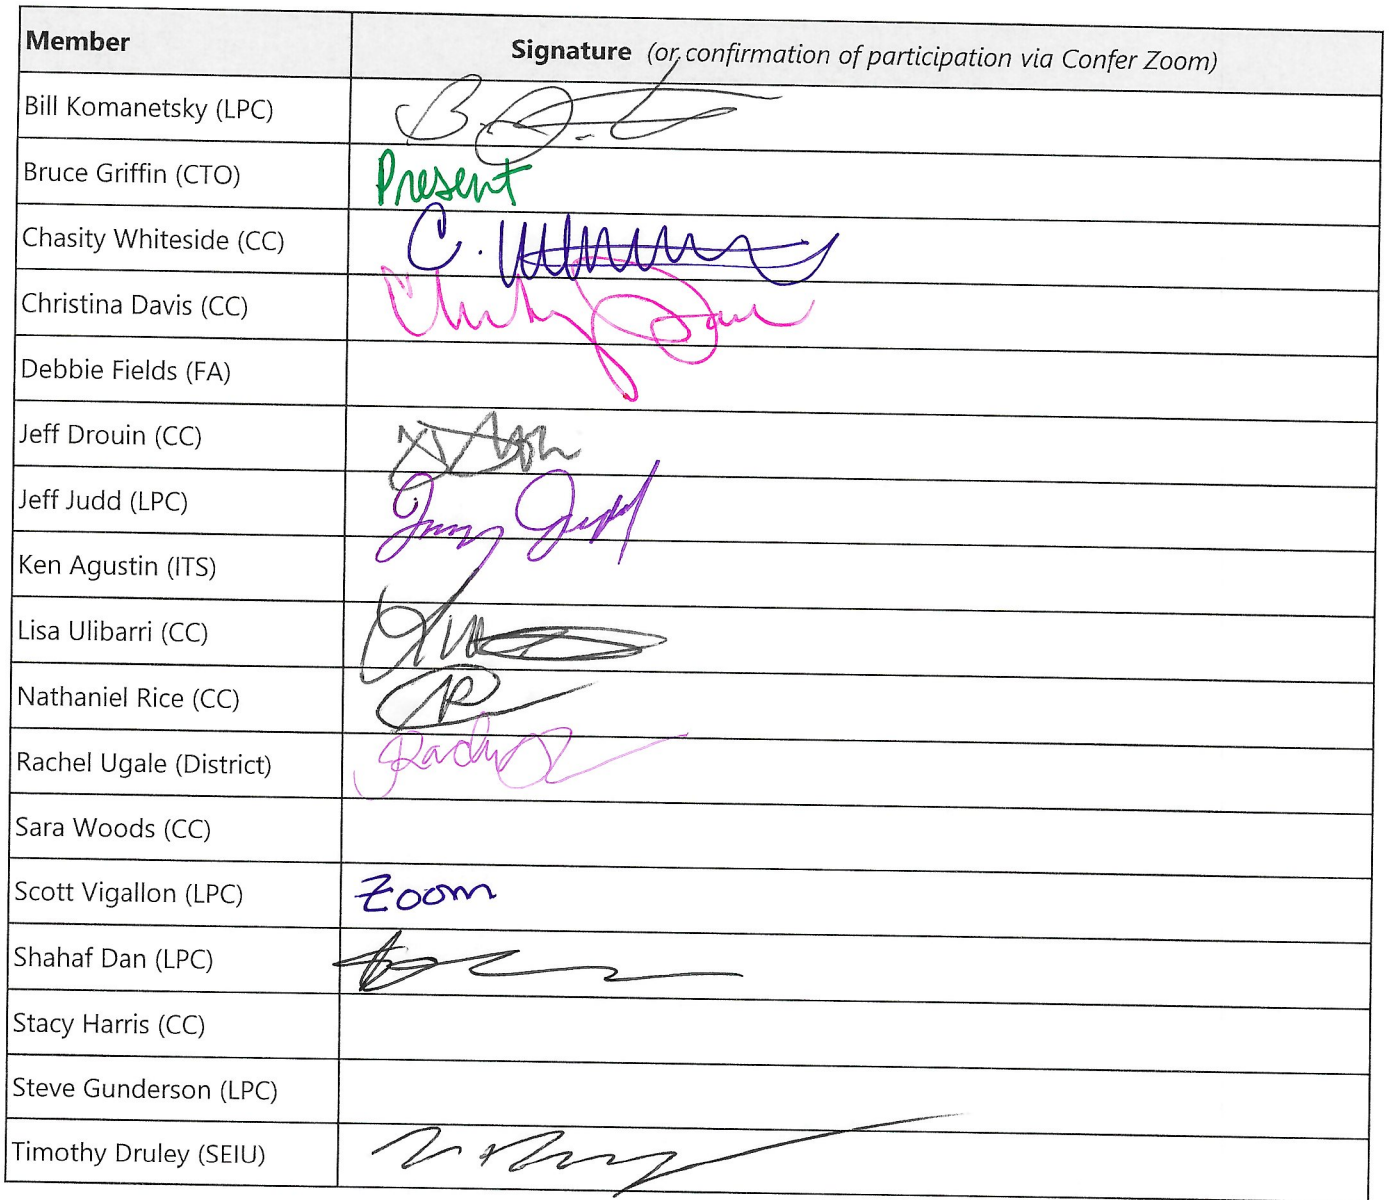 Member Signature (or confirmation of participation via Confer Zoom)
Bill Komanetsky (LPC)
Bruce Griffin (CTO) Present
Chasity Whiteside (CC) C.
Christina Davis (CC)
Debbie Fields (FA)
Jeff Drouin (CC)
Jeff Judd (LPC)
Ken Agustin (ITS)
Lisa Ulibarri (CC)
Nathaniel Rice (CC)
Rachel Ugale (District)
Sara Woods (CC)
Scott Vigallon (LPC) Zoom
Shahaf Dan (LPC)
Stacy Harris (CC)
Steve Gunderson (LPC)
Timothy Druley (SEIU)